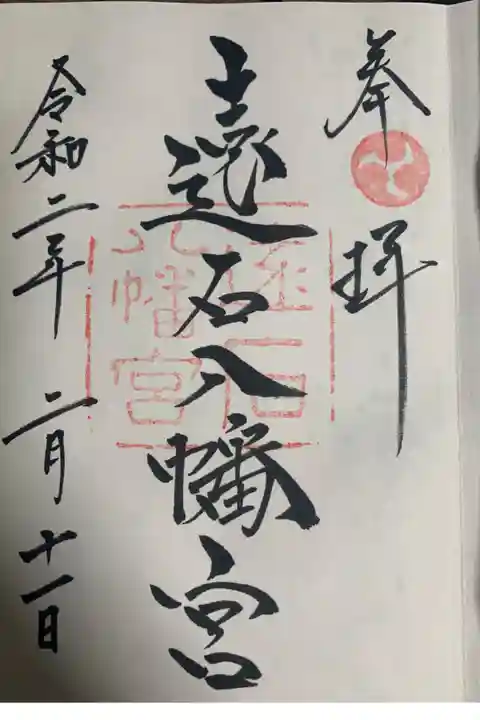 奉拝
遠石八幡宮
令和二年二月十一日
遠石
八幡宮